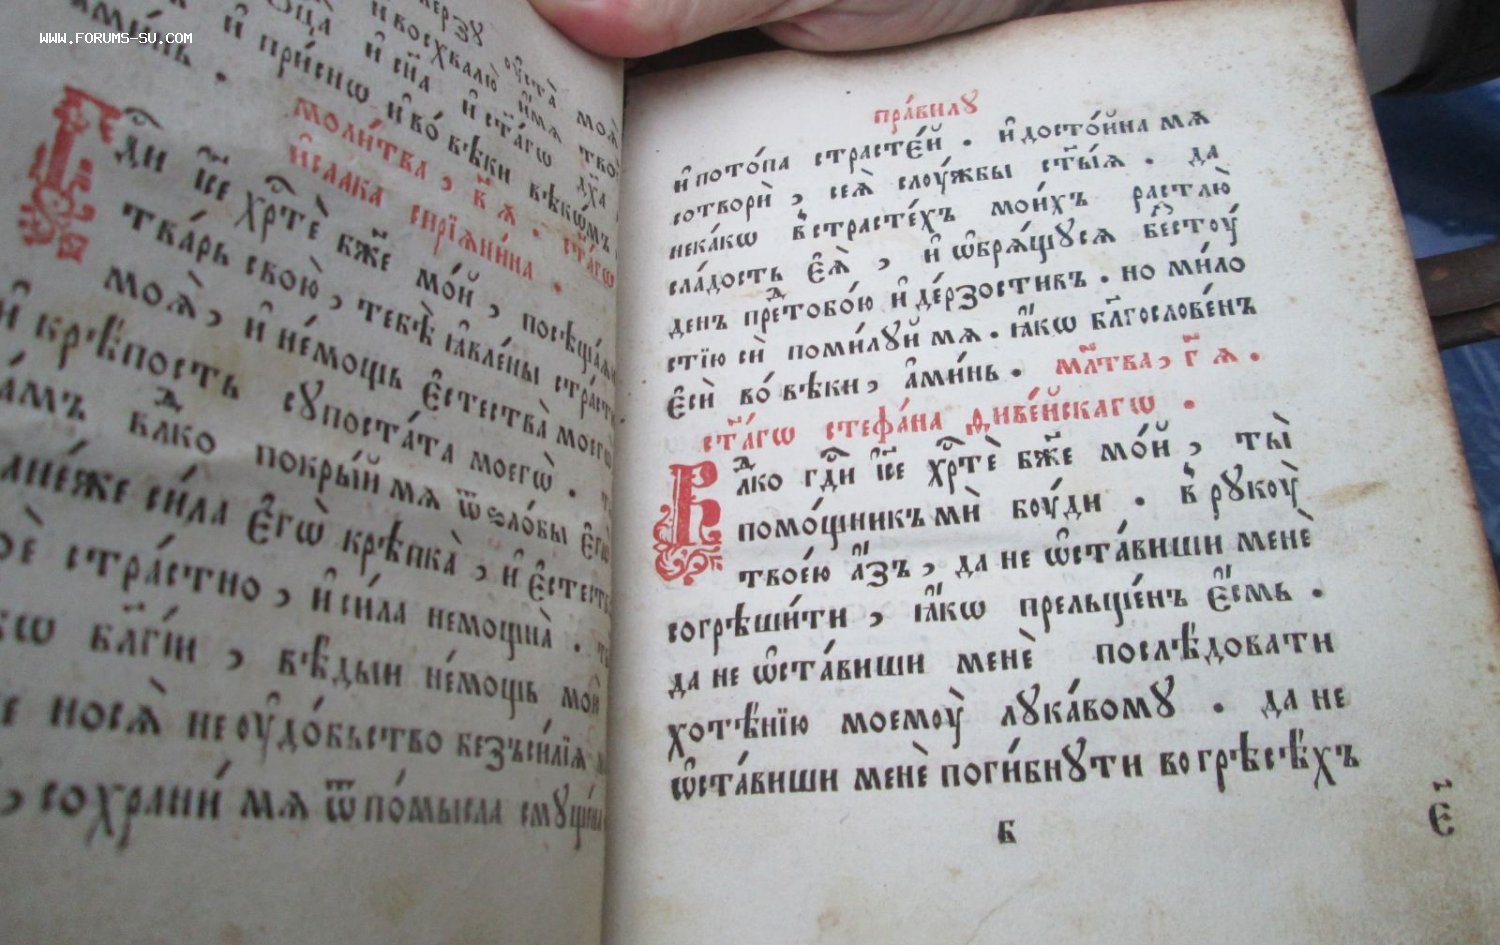 WWW.FORUMS-SU.COM
ѹ҆ста̀ моѧ̀
и восхвалю̀ и҆мѧ твое
ѻц҃а и҆ сн҃а и҆ ст҃а́гѡ дх҃а
и҆ при́снѡ и҆ во́ вѣки вѣкѡ́мъ
ами́нь.
моли́тва, в҃ ѧ. ст҃а́гѡ
и҆саака сирїѧни́на.
Гд҇и і҆с҃е хр҇тѐ бж҃е мо́й, посѣща́ѧ
тва́рь свою̀, тебѣ̀ ꙗ҆вле́ны стра́сти
моѧ̀, и҆ не́мощь є҆стества̀ моегѡ̀
и҆ крѣ́пость сꙋпоста́та моегѡ̀.
вл҇ко покры́й мѧ ѿ ѕло́бы є҆гѡ̀
зане́же си́ла є҆гѡ̀ крѣпка̀, и҆ є҆стество
стра́стно, и҆ си́ла немощна̀.
бл҃гі́и, вѣ́дыи не́мощь мою̀
носѧ̀ не ѹ҆до́бьство безъси́лїѧ
, сохрани́ мѧ ѿ по́мысла смꙋще́на
пра́вилꙋ
и҆ пото́па страсте́й. и҆ досто́йна мѧ
сотворѝ, сеѧ̀ слѹ́жбы ст҃ы́ѧ. да
нека́кѡ в҆ страсте́хъ мои́хъ растлю̀
сла́дость є҆ѧ̀, и҆ ѡ҆брѧ́щꙋсѧ бе́стѹ
денъ пред̾ тобо́ю и҆ де́рзостикъ. но ми́ло
стїю сѝ поми́лꙋй мѧ. ꙗ҆́кѡ бл҃гослове́нъ
є҆сѝ во́ вѣки, а҆ми́нь. мл҃тва, г҃ ѧ.
ст҃а́гѡ стефа́на ѳиве́йскагѡ.
Вл҇ко гд҇и і҆с҃е хр҇тѐ бж҃е мо́й, ты̀
помо́щникъ мѝ бѹ́ди. в҆ рꙋкѹ̀
твое́ю а҆́зъ, да не ѡ҆ста́виши менѐ
согрѣши́ти, ꙗ҆́кѡ прельще́нъ є҆́смь.
да не ѡ҆ста́виши менѐ послѣ́довати
хотѣ́нїю моемѹ̀ лꙋка́вомꙋ. да не
ѡ҆ста́виши менѐ поги́бнꙋти во грѣсѣ́хъ
б
є҃